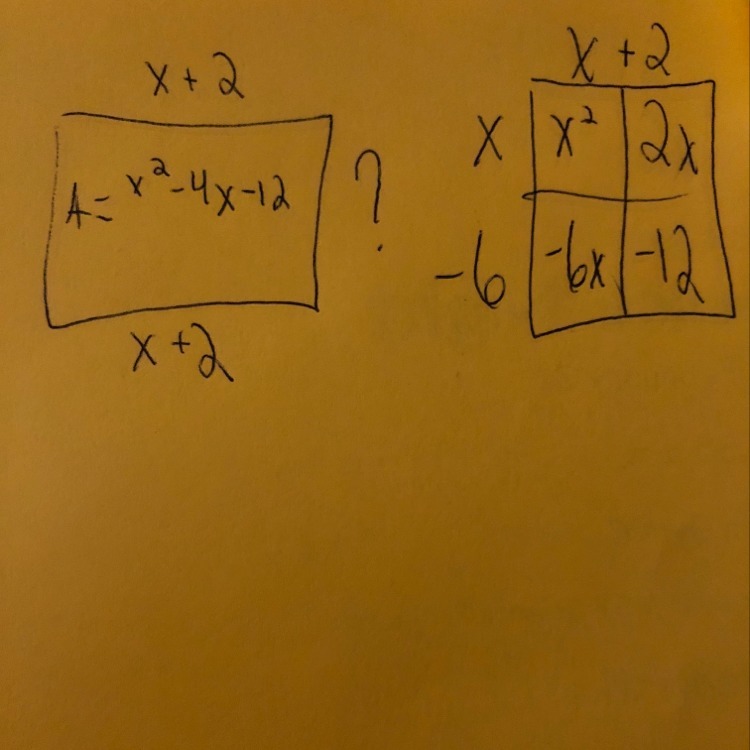 x + 2
A = x² - 4x - 12
?
x + 2
x + 2
x x² 2x
-6 -6x -12